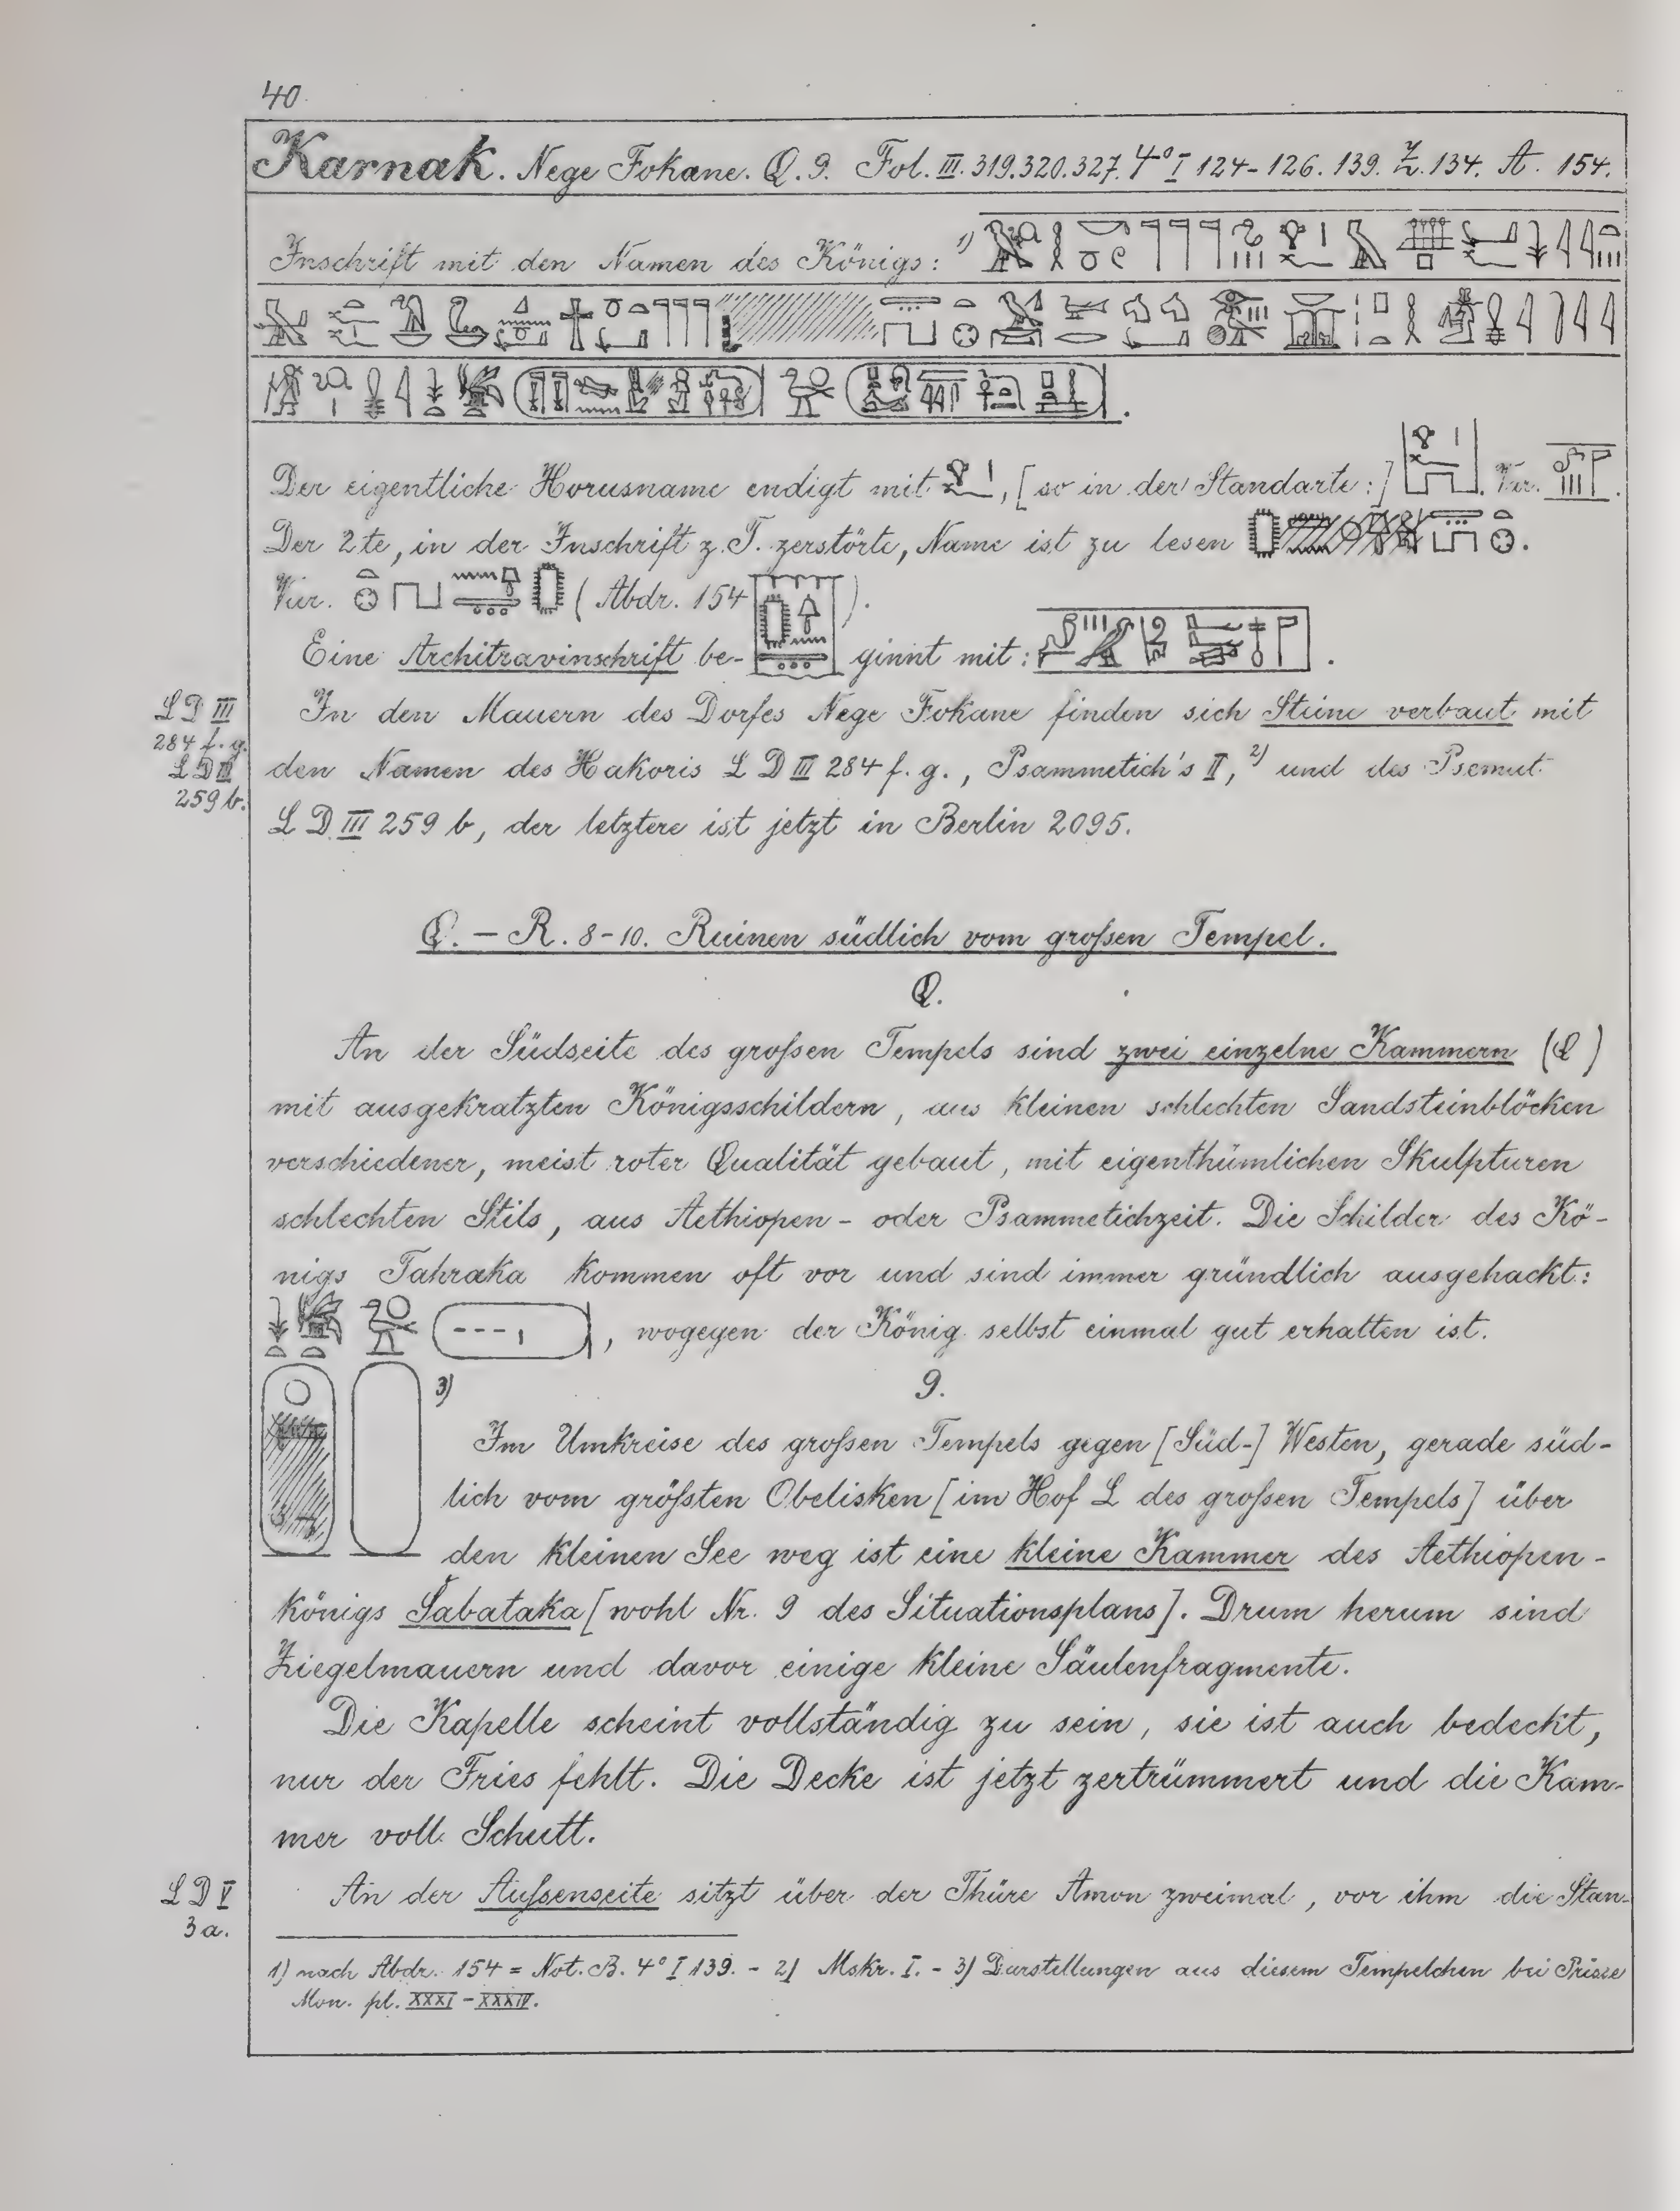 40.
Karnak. Nege Fokane. Q. 9. Fol. III. 319. 320. 327. 4° I 124-126. 139. Z. 134. A. 154.
Inschrift mit den Namen des Königs: 1)
Der eigentliche Horusname endigt mit , [so in der Standarte:] . Var. .
Der 2te, in der Inschrift z. T. zerstörte, Name ist zu lesen .
Var. (Abdr. 154 ).
Eine Architravinschrift be- ginnt mit: .
LD III
284 f. g.
LD III
259 b.
In den Mauern des Dorfes Nege Fokane finden sich Steine verbaut mit
den Namen des Hakoris LD III 284 f. g., Psammetich's II, 2) und des Psemut
LD III 259 b, der letztere ist jetzt in Berlin 2095.
Q. – R. 8-10. Ruinen südlich vom großen Tempel.
Q.
An der Südseite des großen Tempels sind zwei einzelne Kammern (Q)
mit ausgekratzten Königsschildern, aus kleinen schlechten Sandsteinblöcken
verschiedener, meist roter Qualität gebaut, mit eigenthümlichen Skulpturen
schlechten Stils, aus Aethiopen- oder Psammetichzeit. Die Schilder des Kö-
nigs Tahraka kommen oft vor und sind immer gründlich ausgehackt:
, wogegen der König selbst einmal gut erhalten ist.
3)
9.
Im Umkreise des großen Tempels gegen [Süd-] Westen, gerade süd-
lich vom größten Obelisken [im Hof L des großen Tempels] über
den kleinen See weg ist eine kleine Kammer des Aethiopen-
königs Šabataka [wohl Nr. 9 des Situationsplans]. Drum herum sind
Ziegelmauern und davor einige kleine Säulenfragmente.
Die Kapelle scheint vollständig zu sein, sie ist auch bedeckt,
nur der Fries fehlt. Die Decke ist jetzt zertrümmert und die Kam-
mer voll Schutt.
LD V
3 a.
An der Außenseite sitzt über der Thüre Amon zweimal, vor ihm die Stan-
1) nach Abdr. 154 = Not. B. 4° I 139. - 2) Mskr. I. - 3) Darstellungen aus diesem Tempelchen bei Prisse
Mon. pl. XXXI - XXXIV.